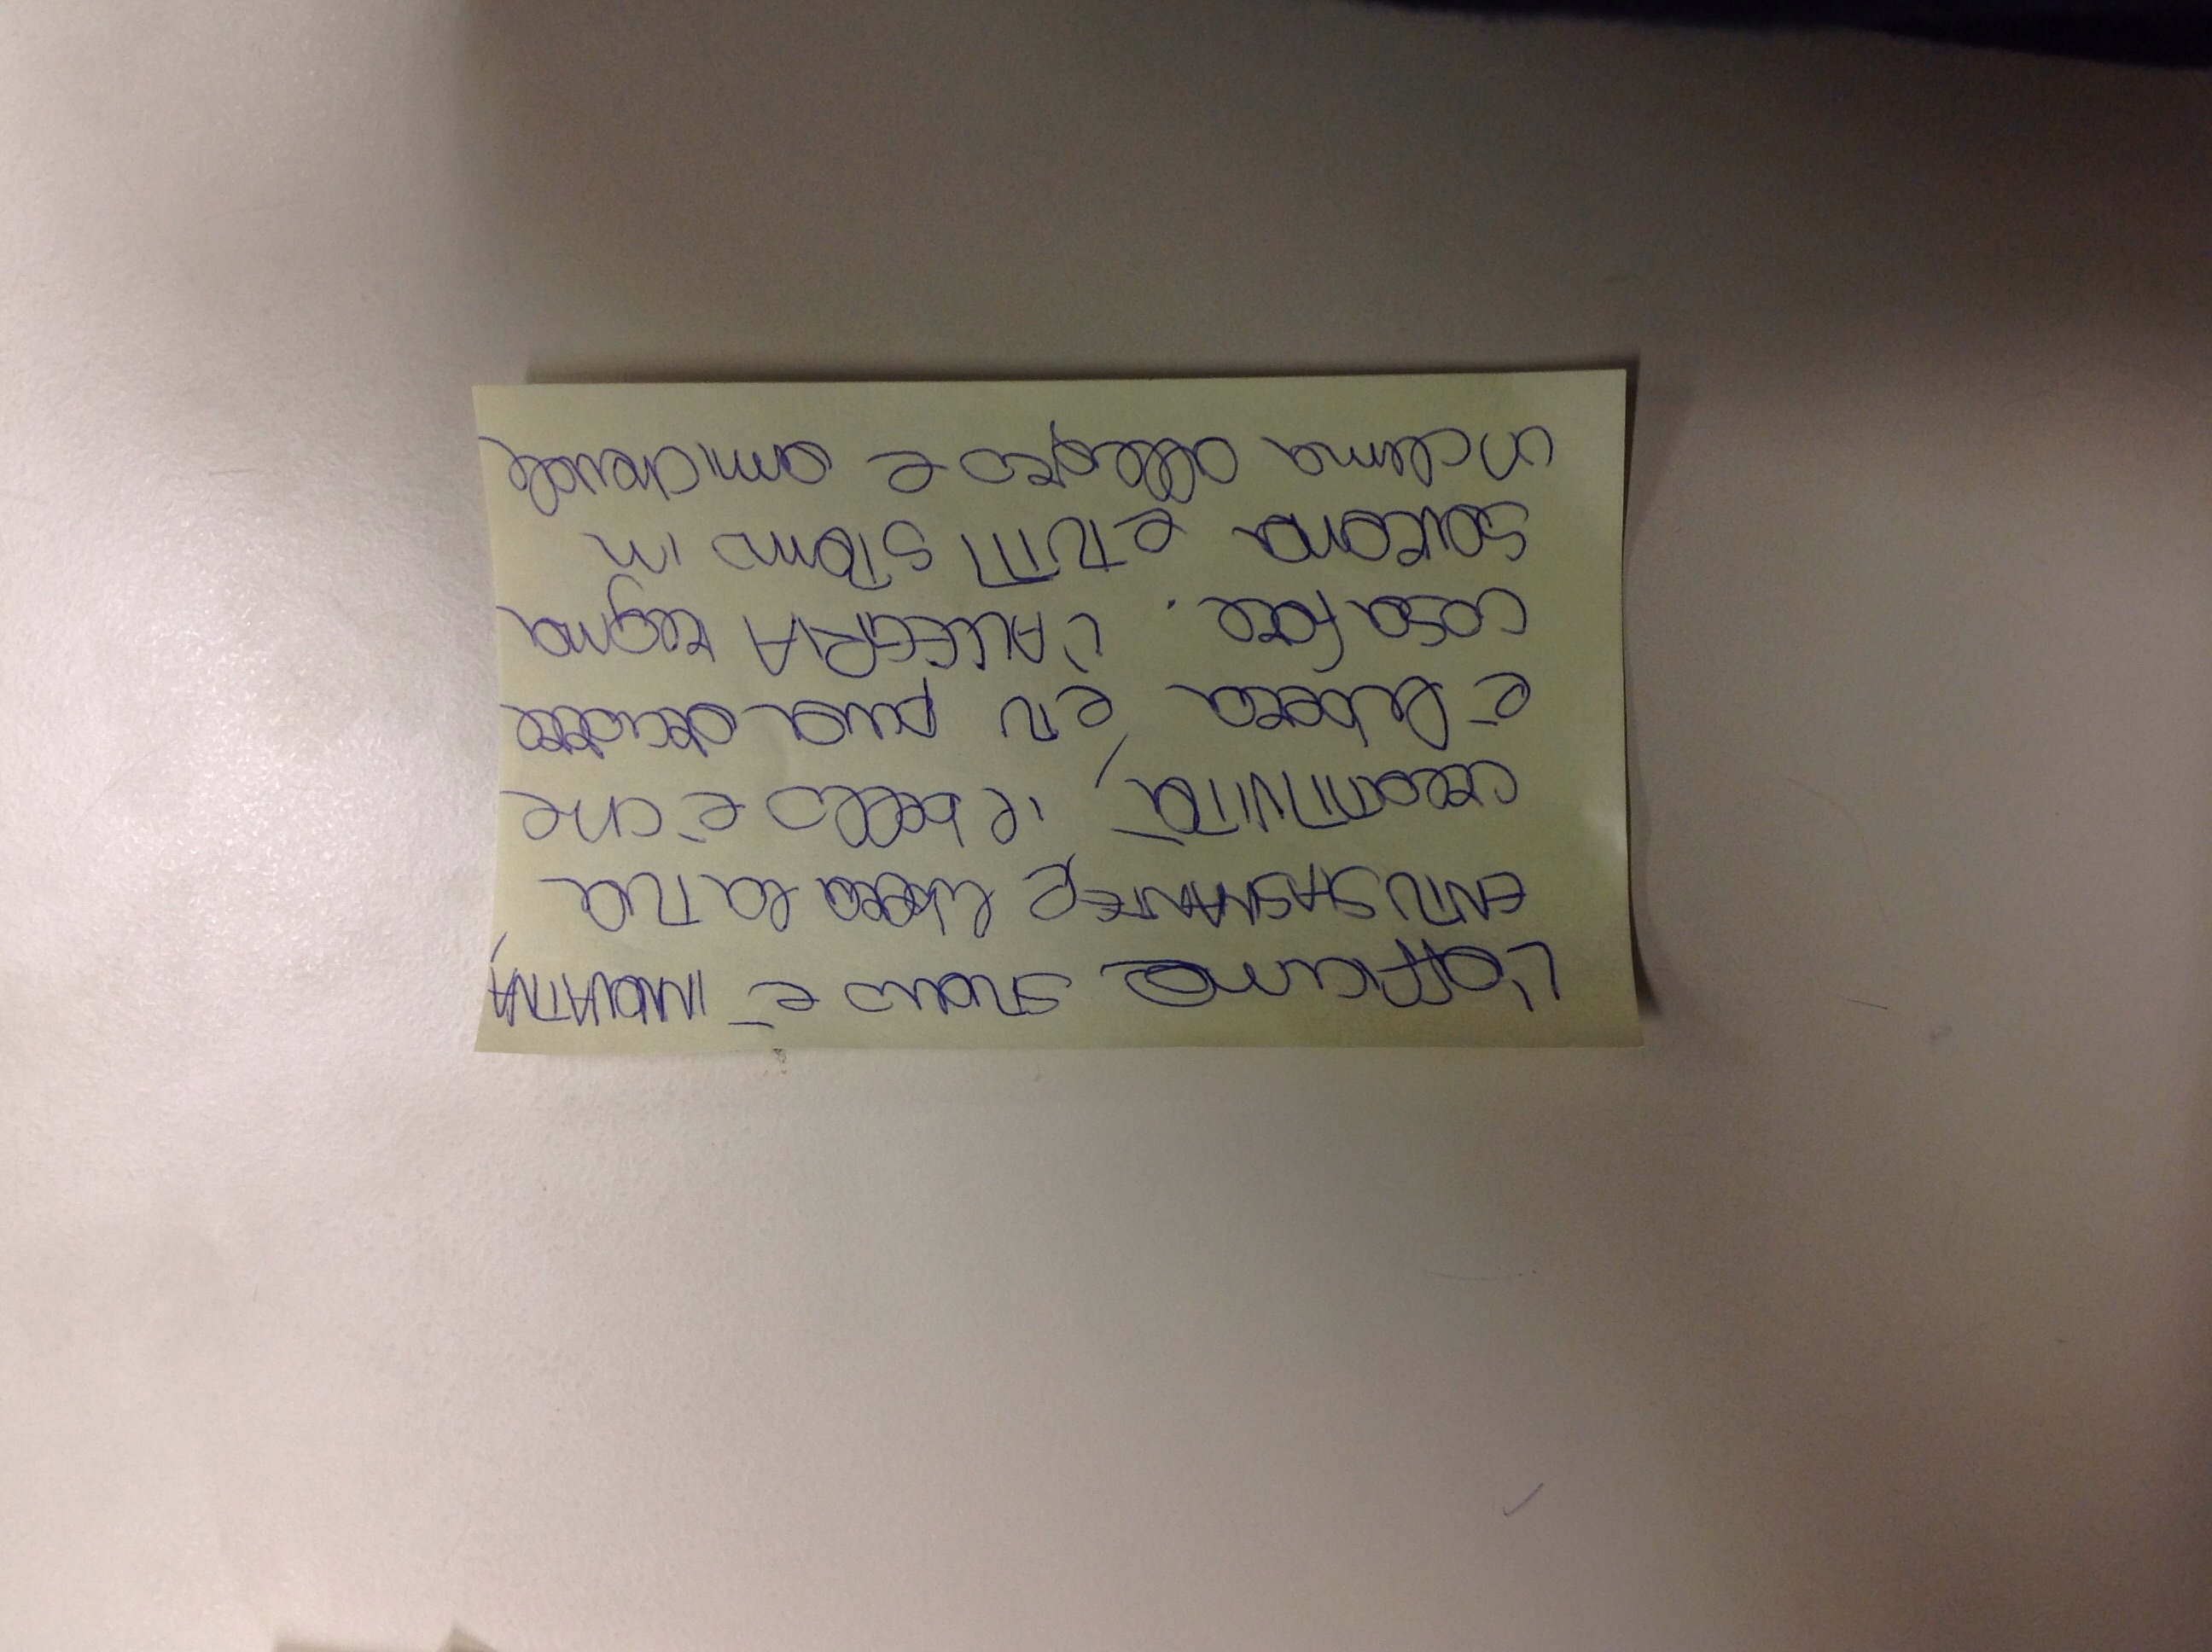 L'officina studio è INNOVATIVA,
ENTUSIASMANTE e libera la tua
creatitività, il bello è che
è libera, e tu puoi decidere
cosa fare. L'ALLEGRIA regna
sovrana e tutti stanno in
un clima allegro e amichevole